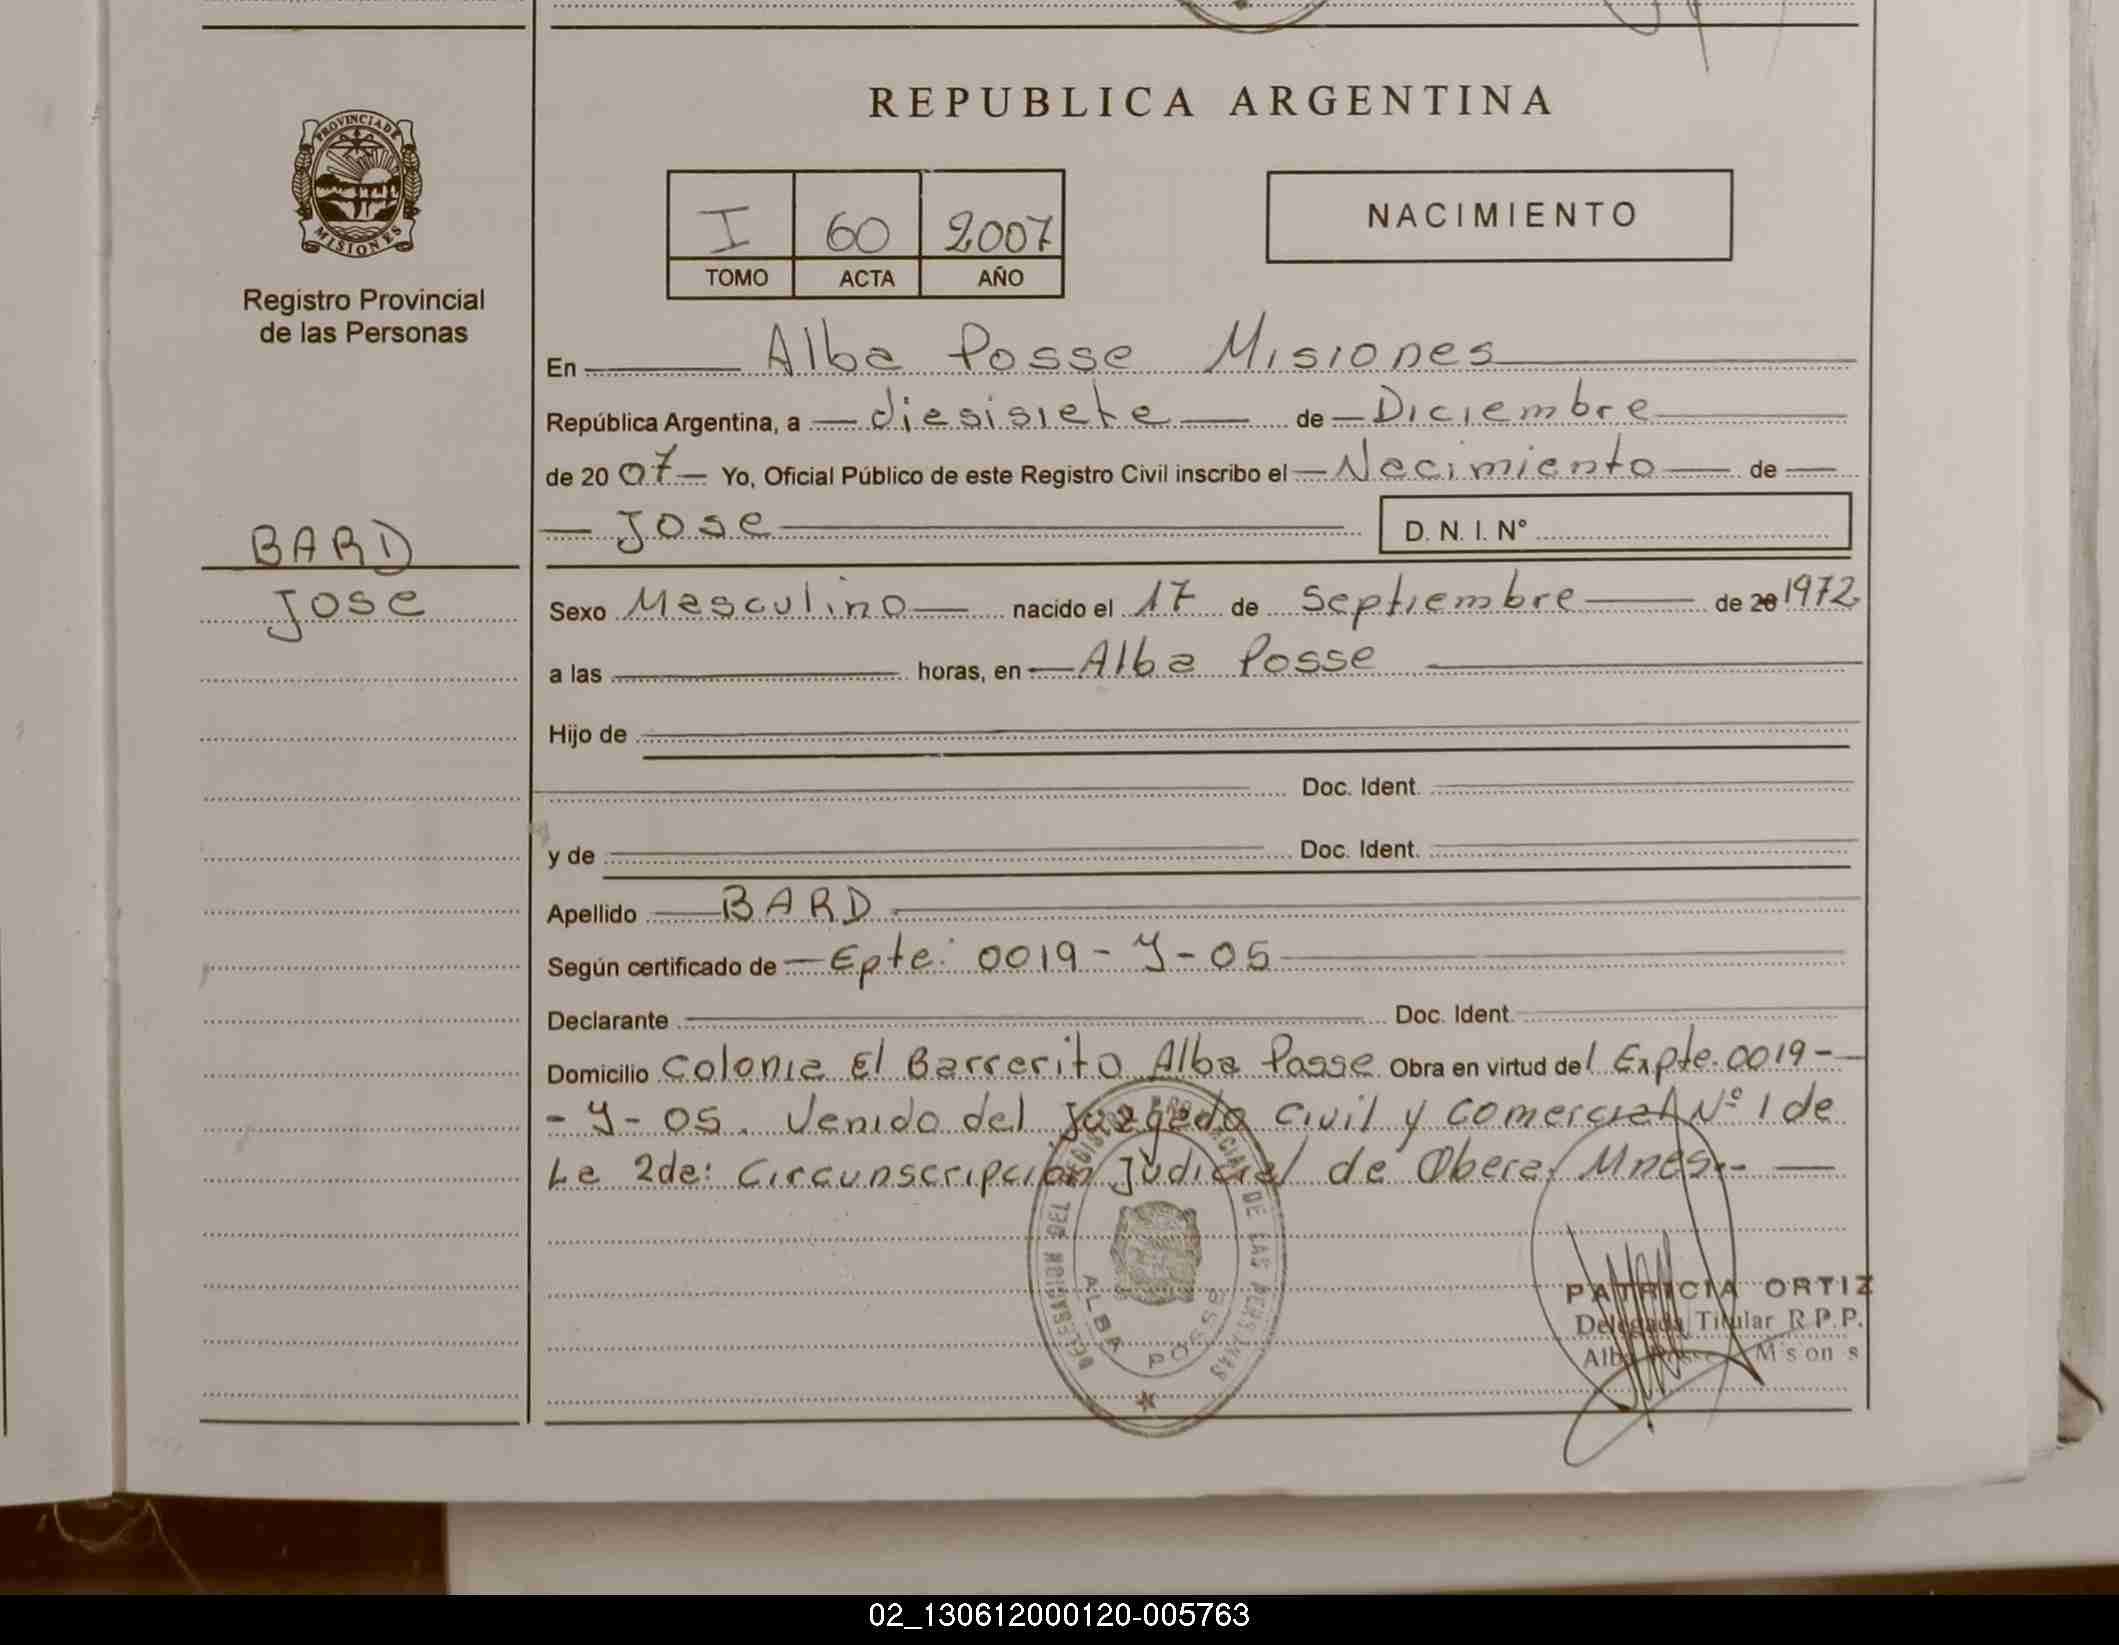 REPUBLICA ARGENTINA
PROVINCIA DE
MISIONES
Registro Provincial
de las Personas
I 60 2007
TOMO ACTA AÑO
NACIMIENTO
En Alba Posse Misiones
República Argentina, a diesisiete de Diciembre
de 20 07 Yo, Oficial Público de este Registro Civil inscribo el Nacimiento de
Jose D. N. I. Nº
BARD
Jose
Sexo Masculino nacido el 17 de Septiembre de 20 1972
a las horas, en Alba Posse
Hijo de
Doc. Ident.
y de Doc. Ident.
Apellido BARD
Según certificado de Epte: 0019-Y-05
Declarante Doc. Ident.
Domicilio Colonia El Barrerito Alba Posse Obra en virtud del Expte. 0019-
-Y-05. Venido del Juzgado Civil y Comercial Nº 1 de
La 2da: Circunscripcion Judicial de Obera, Mnes.-
DELEGACION DEL REGISTRO PROVINCIAL DE LAS PERSONAS
ALBA POSSE
PATRICIA ORTIZ
Delegada Titular R.P.P.
Alba Posse Misiones
02_130612000120-005763